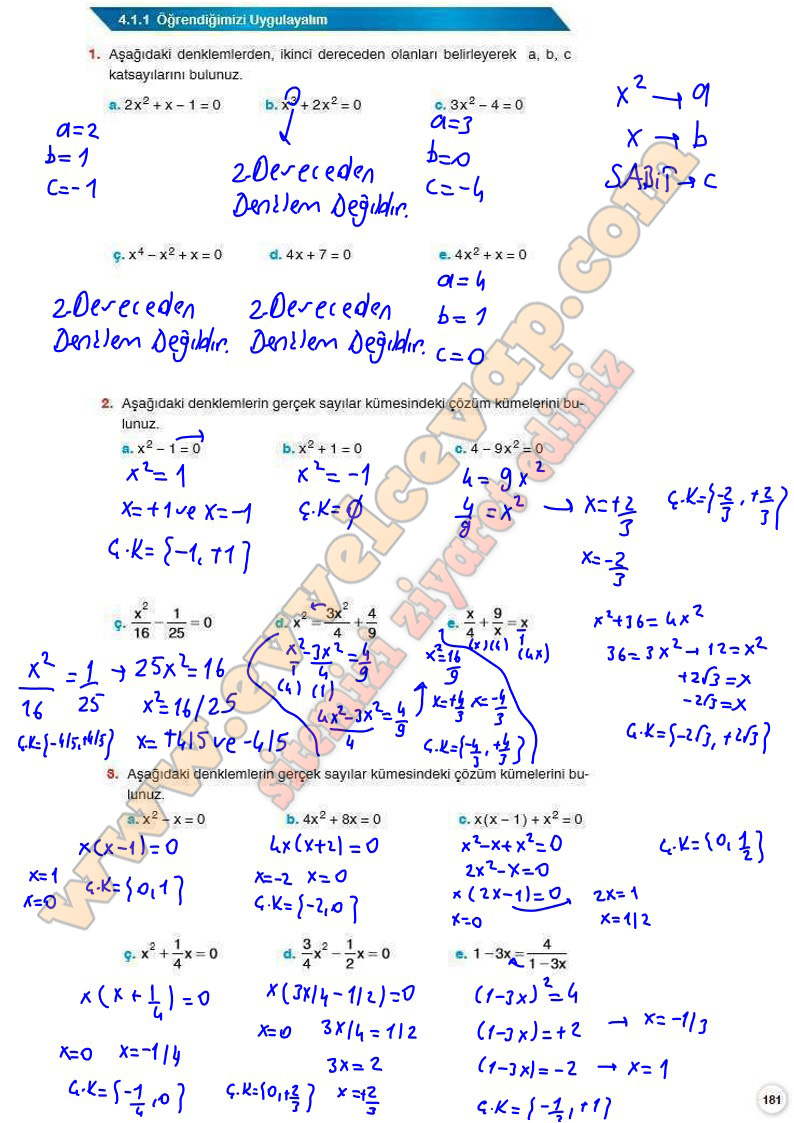 4.1.1 Öğrendiğimizi Uygulayalım
1. Aşağıdaki denklemlerden, ikinci dereceden olanları belirleyerek a, b, c
katsayılarını bulunuz.
a. 2x² + x – 1 = 0
b. x³ + 2x² = 0
c. 3x² – 4 = 0
a=2
b=1
c=-1
2.Dereceden
Denklem Değildir.
a=3
b=0
c=-4
x² → a
x → b
SABİT → c
ç. x⁴ – x² + x = 0
d. 4x + 7 = 0
e. 4x² + x = 0
2.Dereceden
Denklem Değildir.
2.Dereceden
Denklem Değildir.
a=4
b=1
c=0
2. Aşağıdaki denklemlerin gerçek sayılar kümesindeki çözüm kümelerini bu-
lunuz.
a. x² – 1 = 0
b. x² + 1 = 0
c. 4 – 9x² = 0
x²=1
x=+1 ve x=-1
Ç.K={-1,+1}
x²=-1
Ç.K=∅
4=9x²
4/9=x² → x=+2/3
x=-2/3
Ç.K={-2/3,+2/3}
ç. x²/16 – 1/25 = 0
d. x² = 3x²/4 + 4/9
e. x/4 + 9/x = x
1
(x) (4) (4x)
x²/16 = 1/25 → 25x²=16
x²=16/25
x=+4/5 ve -4/5
Ç.K={-4/5,+4/5}
x²/1 - 3x²/4 = 4/9
(4) (1)
4x²-3x²/4 = 4/9
x²=16/9
x=+4/3 x=-4/3
Ç.K={-4/3,+4/3}
x²+36=4x²
36=3x² → 12=x²
+2√3=x
-2√3=x
Ç.K={-2√3,+2√3}
3. Aşağıdaki denklemlerin gerçek sayılar kümesindeki çözüm kümelerini bu-
lunuz.
a. x² – x = 0
b. 4x² + 8x = 0
c. x(x – 1) + x² = 0
x(x-1)=0
x=1
x=0
Ç.K={0,1}
4x(x+2)=0
x=-2 x=0
Ç.K={-2,0}
x²-x+x²=0
2x²-x=0
x(2x-1)=0
x=0
2x=1
x=1/2
Ç.K={0,1/2}
ç. x² + 1/4 x = 0
d. 3/4 x² – 1/2 x = 0
e. 1 – 3x = 4/1 – 3x
x(x+1/4)=0
x=0 x=-1/4
Ç.K={-1/4,0}
x(3x/4-1/2)=0
x=0 3x/4=1/2
3x=2
Ç.K={0,+2/3} x=+2/3
(1-3x)²=4
(1-3x)=+2 → x=-1/3
(1-3x)=-2 → x=1
Ç.K={-1/3,+1}
181
www.evvelcevap.com
sitemizi ziyaret ediniz